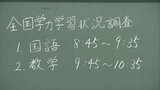 全国学力学習状況調査
1. 国語 8:45〜9:35
2. 数学 9:45〜10:35